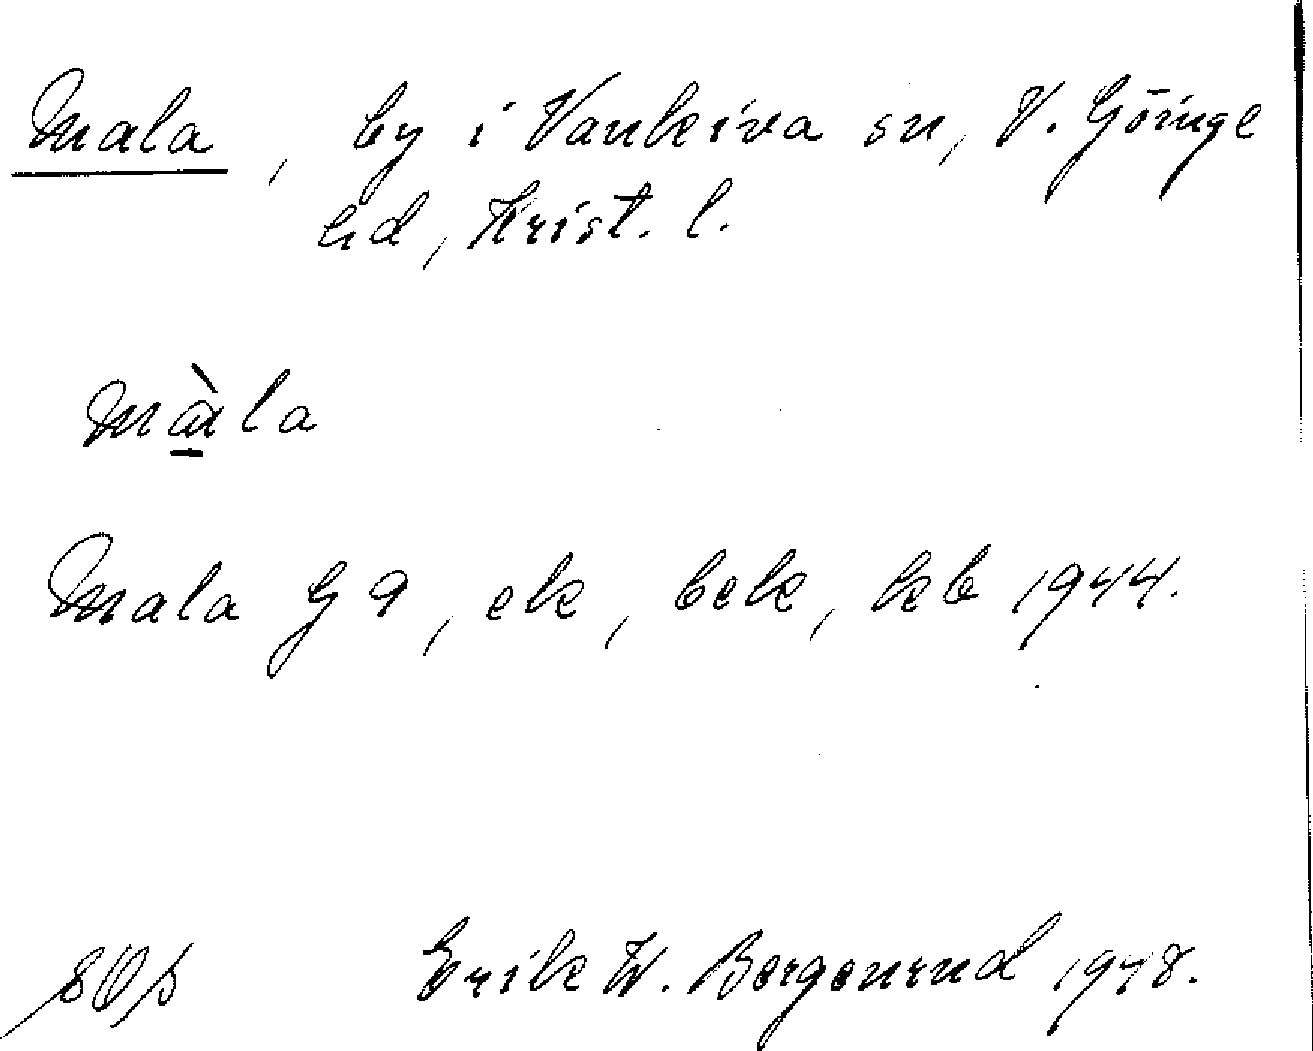 Mala, by i Vankiva sn, V. Göinge
hd, Krist. l.
màla
Mala G 9, ek, bek, kb 1944.
Erik W. Bergenrud 1948.